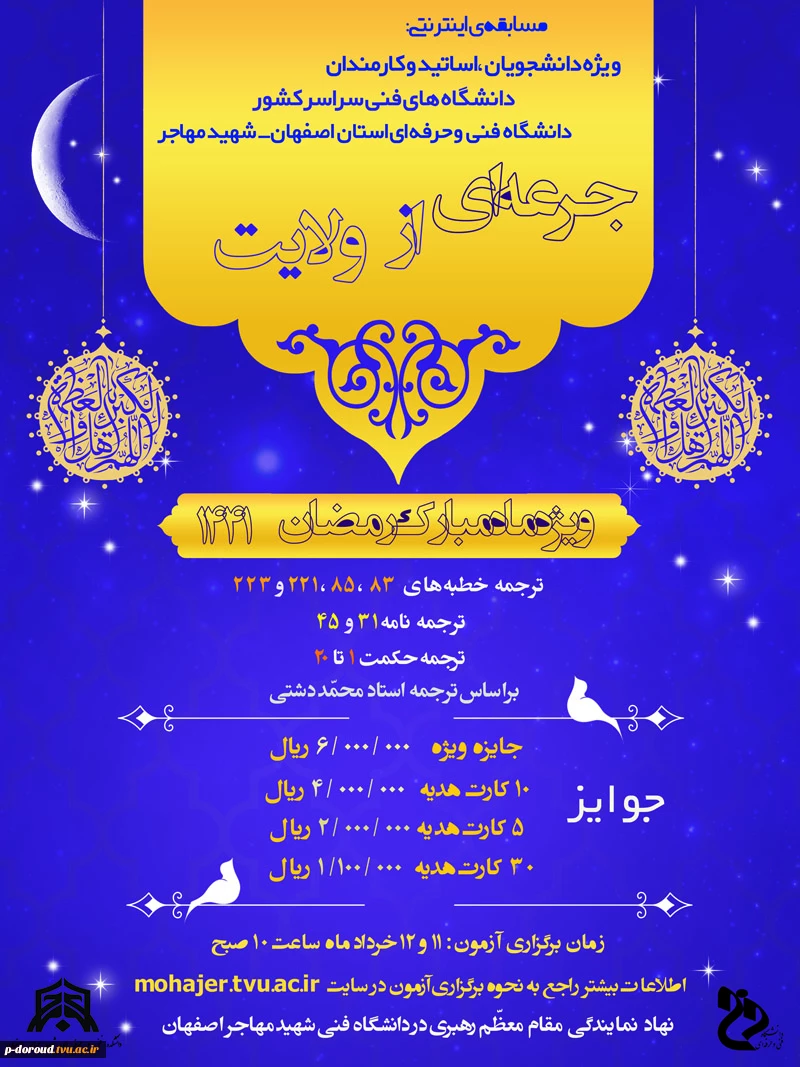 مسابقه‌ی اینترنتی:
ویژه دانشجویان ،اساتید و کارمندان
دانشگاه های فنی سراسر کشور
دانشگاه فنی و حرفه ای استان اصفهان_ شهید مهاجر
جرعه‌ای از ولایت
اللهم اهل الکبریاء والعظمة
اللهم اهل الکبریاء والعظمة
ویژه ماه مبارک رمضان ۱۴۴۱
ترجمه خطبه های ۸۳ ،۸۵ ،۲۲۱ و ۲۲۳
ترجمه نامه ۳۱ و ۴۵
ترجمه حکمت ۱ تا ۲۰
براساس ترجمه استاد محمّد دشتی
جوایز
جایزه ویژه ۶/۰۰۰/۰۰۰ ریال
۱۰ کارت هدیه ۴/۰۰۰/۰۰۰ ریال
۵ کارت هدیه ۲/۰۰۰/۰۰۰ ریال
۳۰ کارت هدیه ۱/۱۰۰/۰۰۰ ریال
زمان برگزاری آزمون: ۱۱ و ۱۲ خرداد ماه ساعت ۱۰ صبح
اطلاعات بیشتر راجع به نحوه برگزاری آزمون در سایت mohajer.tvu.ac.ir
نهاد نمایندگی مقام معظّم رهبری در دانشگاه فنی شهید مهاجر اصفهان
دانشگاه فنی و حرفه‌ای
p-doroud.tvu.ac.ir